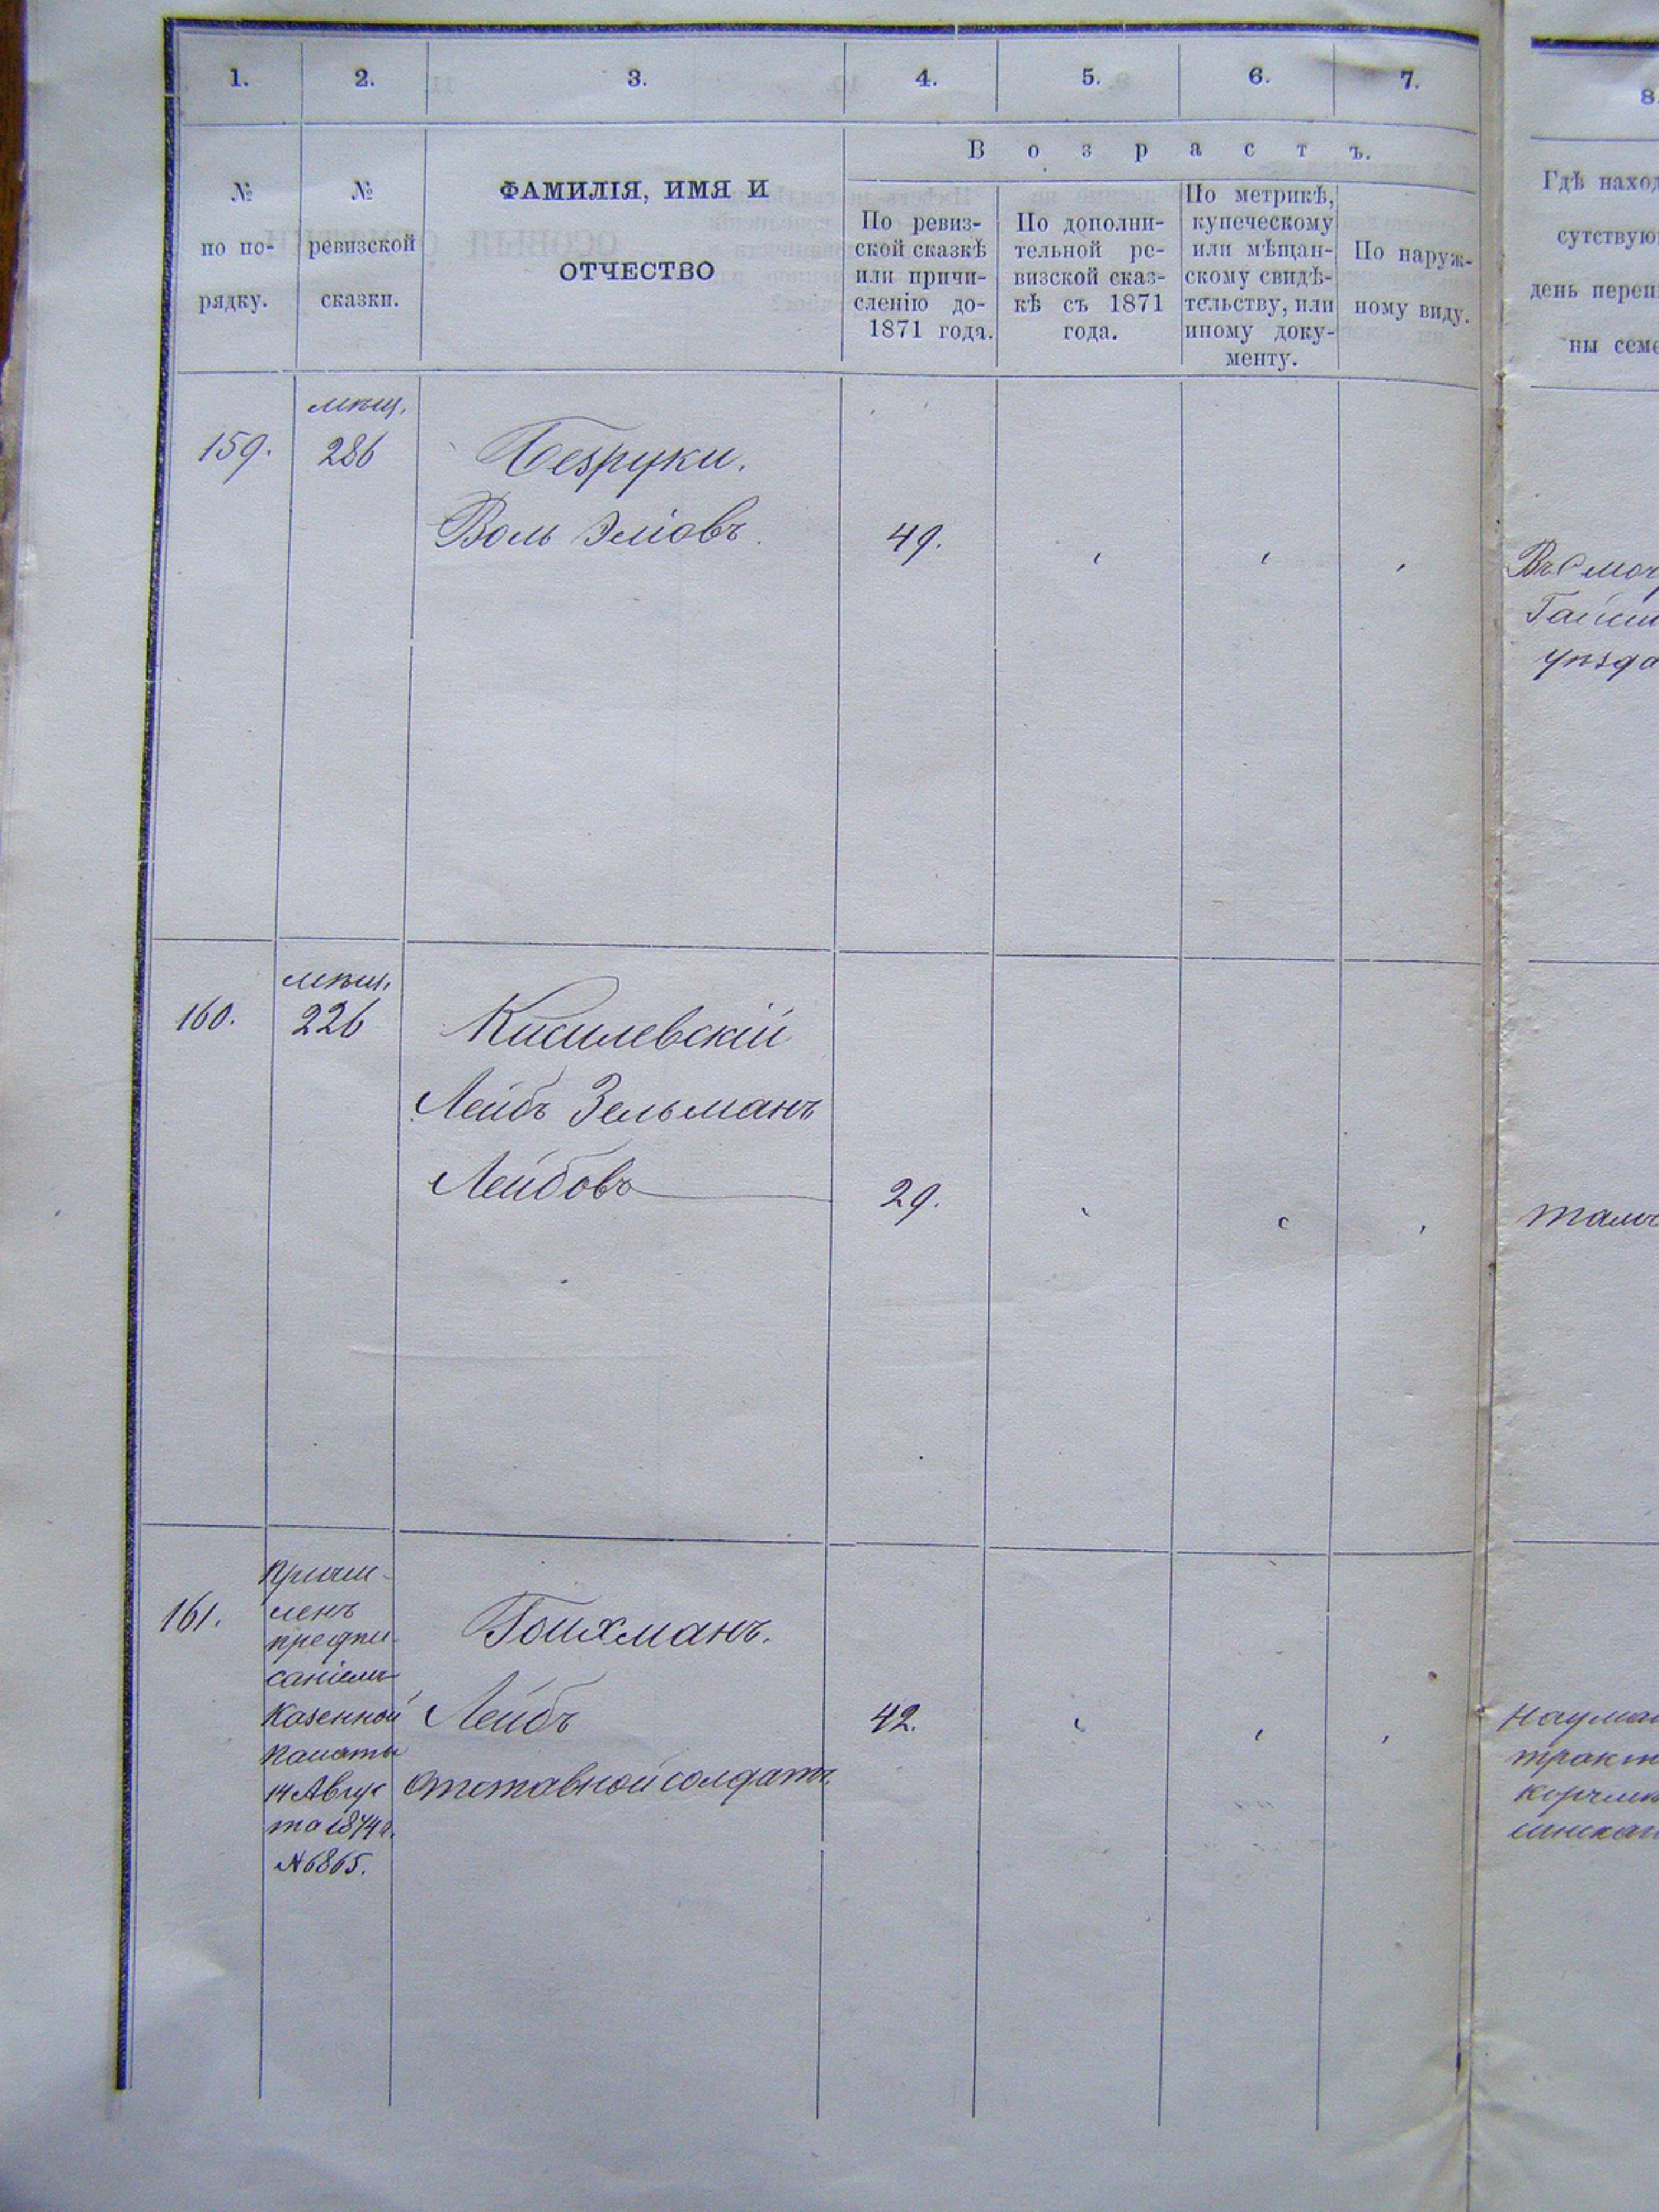 1. 2. 3. 4. 5. 6. 7. 8.
В о з р а с т ъ.
№ по по-рядку.
№ ревизской сказки.
ФАМИЛІЯ, ИМЯ И
ОТЧЕСТВО
По ревиз-
ской сказкѣ
или причи-
сленію до-
1871 года.
По дополни-
тельной ре-
визской сказ-
кѣ съ 1871
года.
По метрикѣ,
купеческому
или мѣщан-
скому свидѣ-
тельству, или
иному доку-
менту.
По наруж-
ному виду.
Гдѣ наход
сутствую
день переп
ны сем
159.
мѣщ.
286
Безруки.
Воль Эліовъ.
49.
Гайси
уѣзда
160.
мѣщ.
226
Кисилевскій
Лейбъ Зельманъ
Лейбовъ
29.
тамъ
161.
Причи-
сленъ
предпи-
саніемъ
Казенной
Палаты
14 Авгус
та 1874 г.
№ 6865.
Гойхманъ.
Лейбъ
отставной солдатъ.
42.
тракт